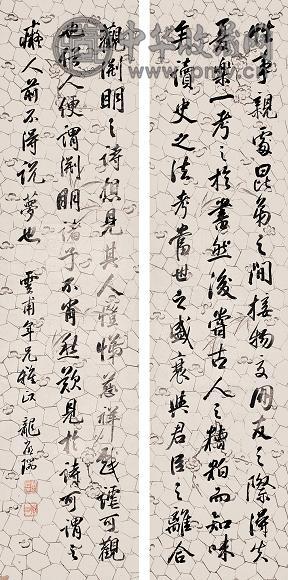 中华收藏网
事親處昆弟之間接物交朋友之際得失
憂樂一考之於書然後嘗古人之糟粕而知味
矣讀史之法考當世之盛衰與君臣之離合
觀淵明之詩想見其人愷悌慈祥戲謔可觀
也俗人便謂淵明諸子不肖愁歎見於詩可謂之
癡人前不得說夢也 雲甫年兄雅正 龍啟瑞